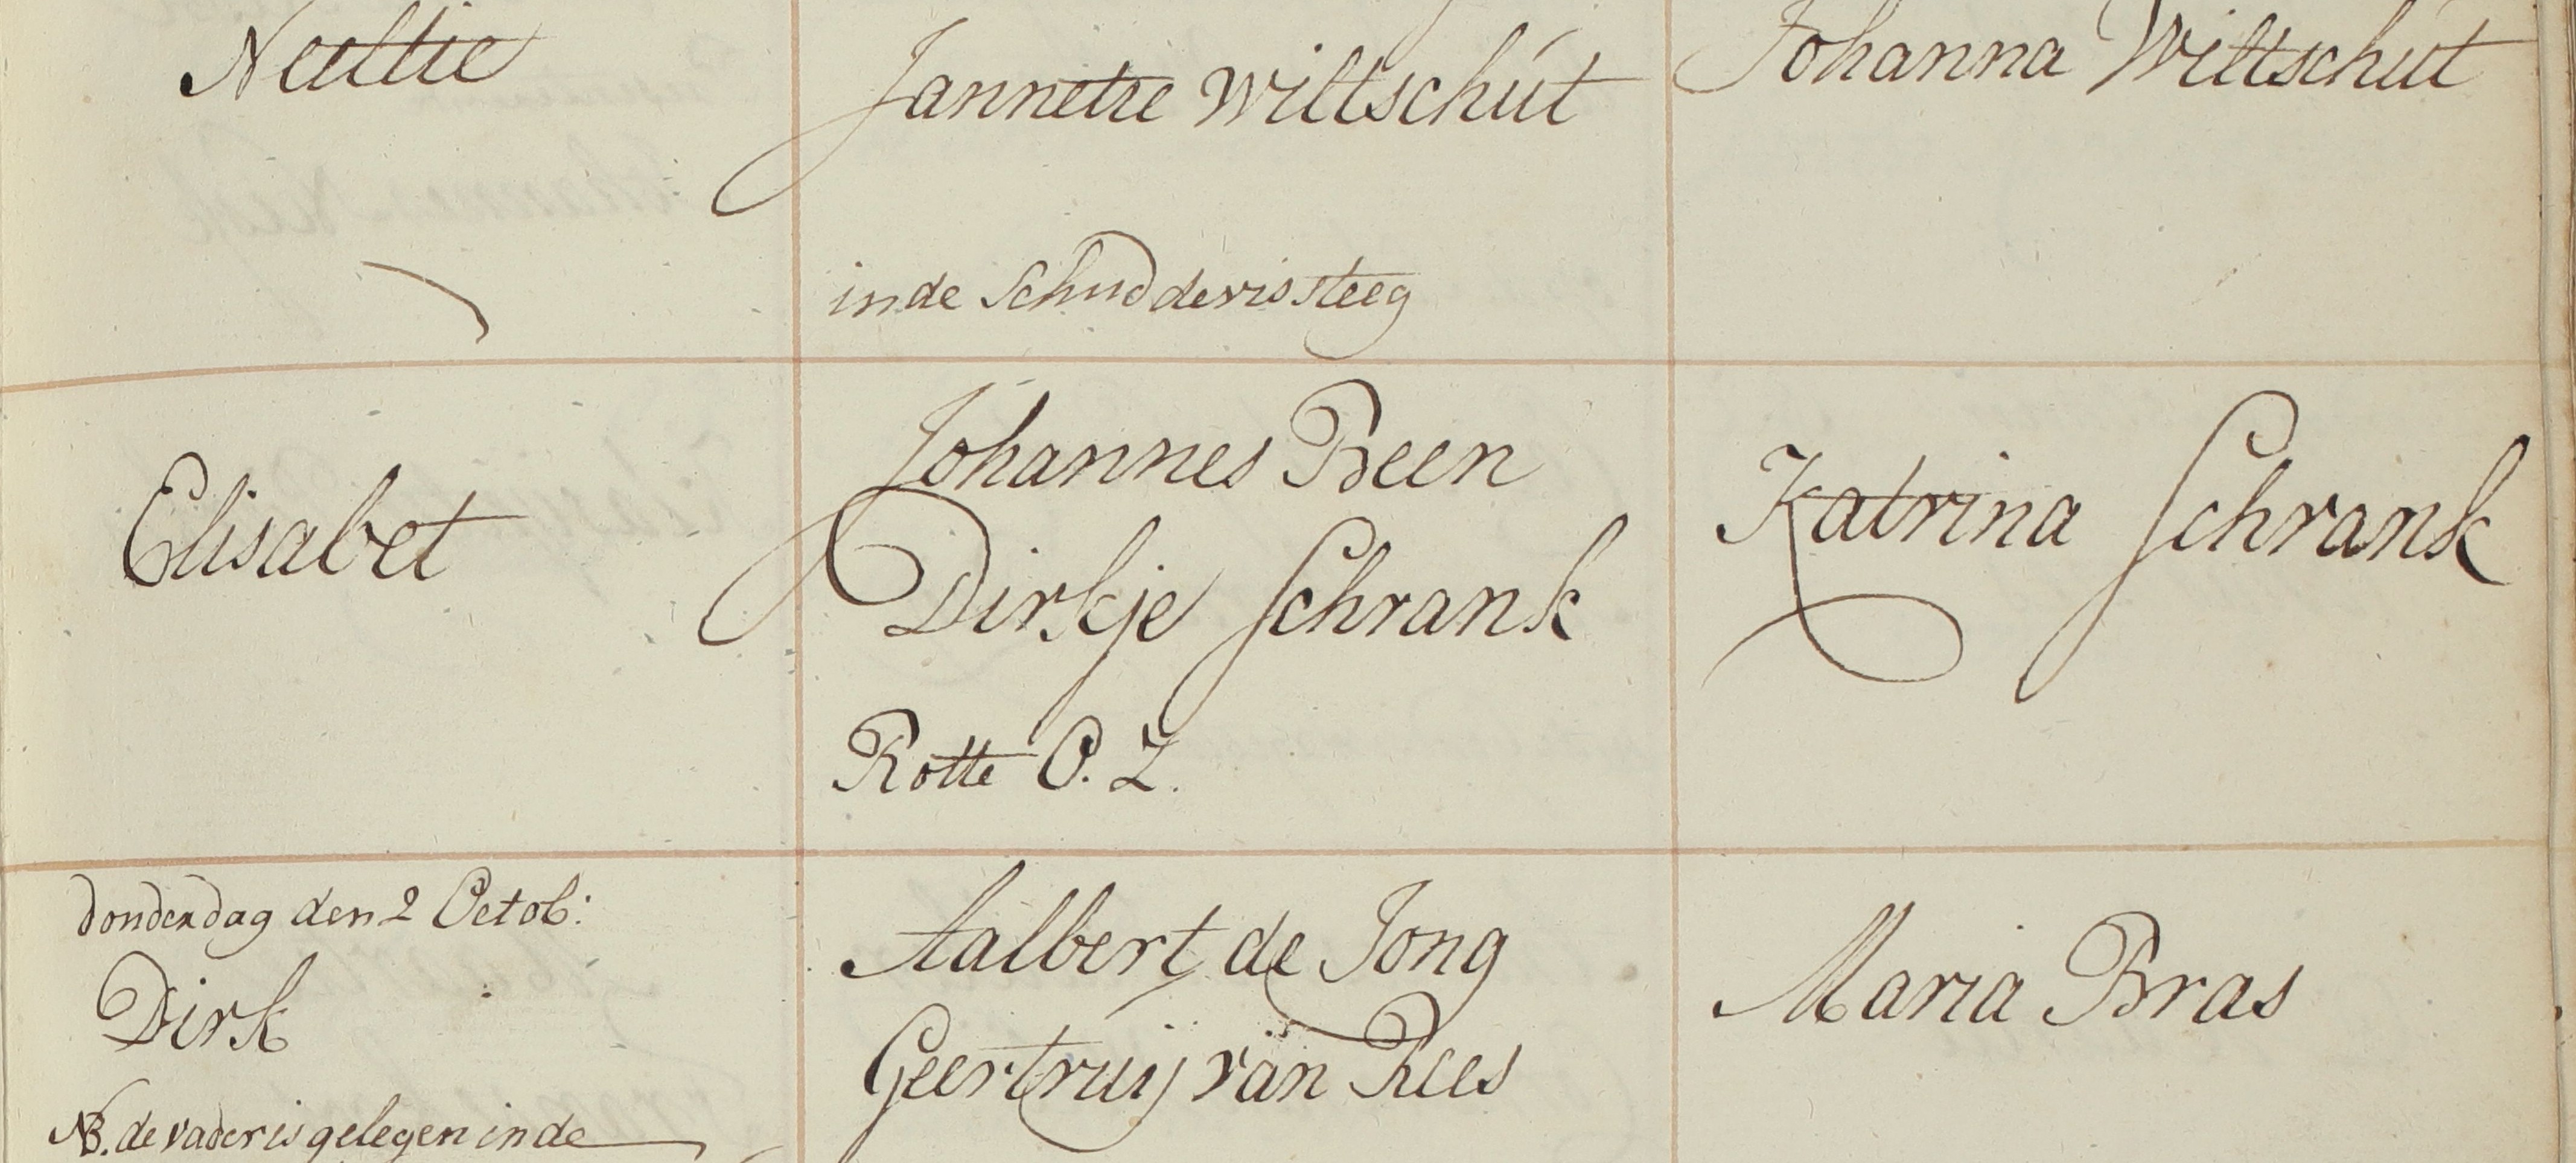 Neeltie
Jannetie Wiltschut
in de Schuddevissteeg
Johanna Wiltschut
Elisabet
Johannes Been
Dirkje Schrank
Rotte O. Z.
Katrina Schrank
donderdag den 2 Octob:
Dirk
NB. de vader is gelegen in de
Aalbert de Jong
Geertruij van Rees
Maria Bras